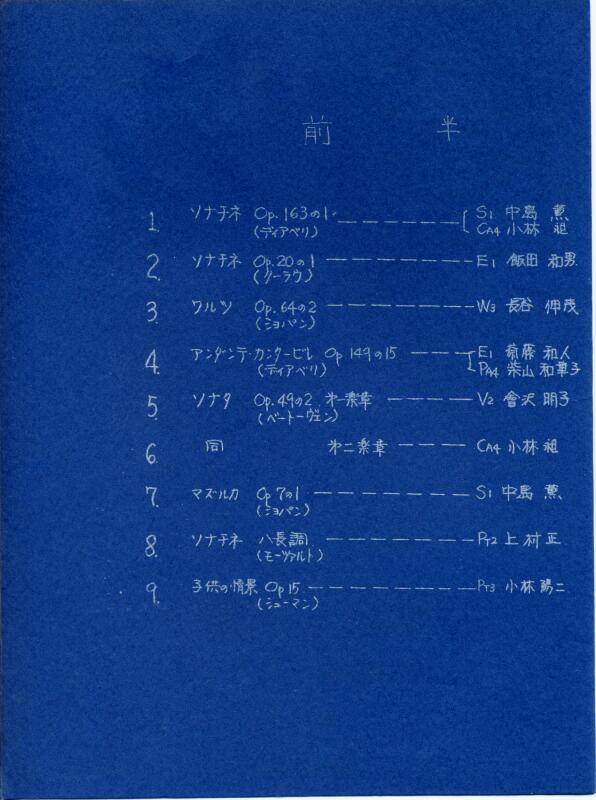 前半
1. ソナチネ Op.163の1 ――――――― S1 中島 薫
(ディアベリ) CA4 小林 祖
2. ソナチネ Op.20の1 ――――――― E1 飯田 和男
(クーラウ)
3. ワルツ Op.64の2 ――――――― W3 長谷 伸茂
(ショパン)
4. アンダンテ・カンタービレ Op 149の15 ―――― E1 斎藤 和人
(ディアベリ) PA4 柴山 和華子
5. ソナタ Op.49の2 第一楽章 ―――― V2 會沢 明子
(ベートーヴェン)
6. 同 第二楽章 ―――― CA4 小林 祖
7. マズルカ Op 7の1 ――――――― S1 中島 薫
(ショパン)
8. ソナチネ ハ長調 ――――――― PT2 上村 正
(モーツァルト)
9. 子供の情景 Op 15 ――――――― PT3 小林 陽二
(シューマン)